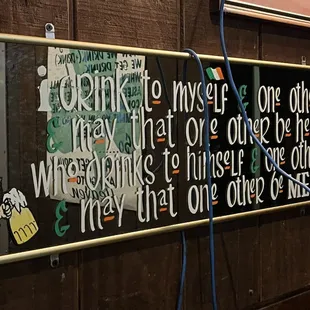 i DRINK to myself & one othe
& may that one other be he
who DRINKS to himself & one othe
& may that one other be ME